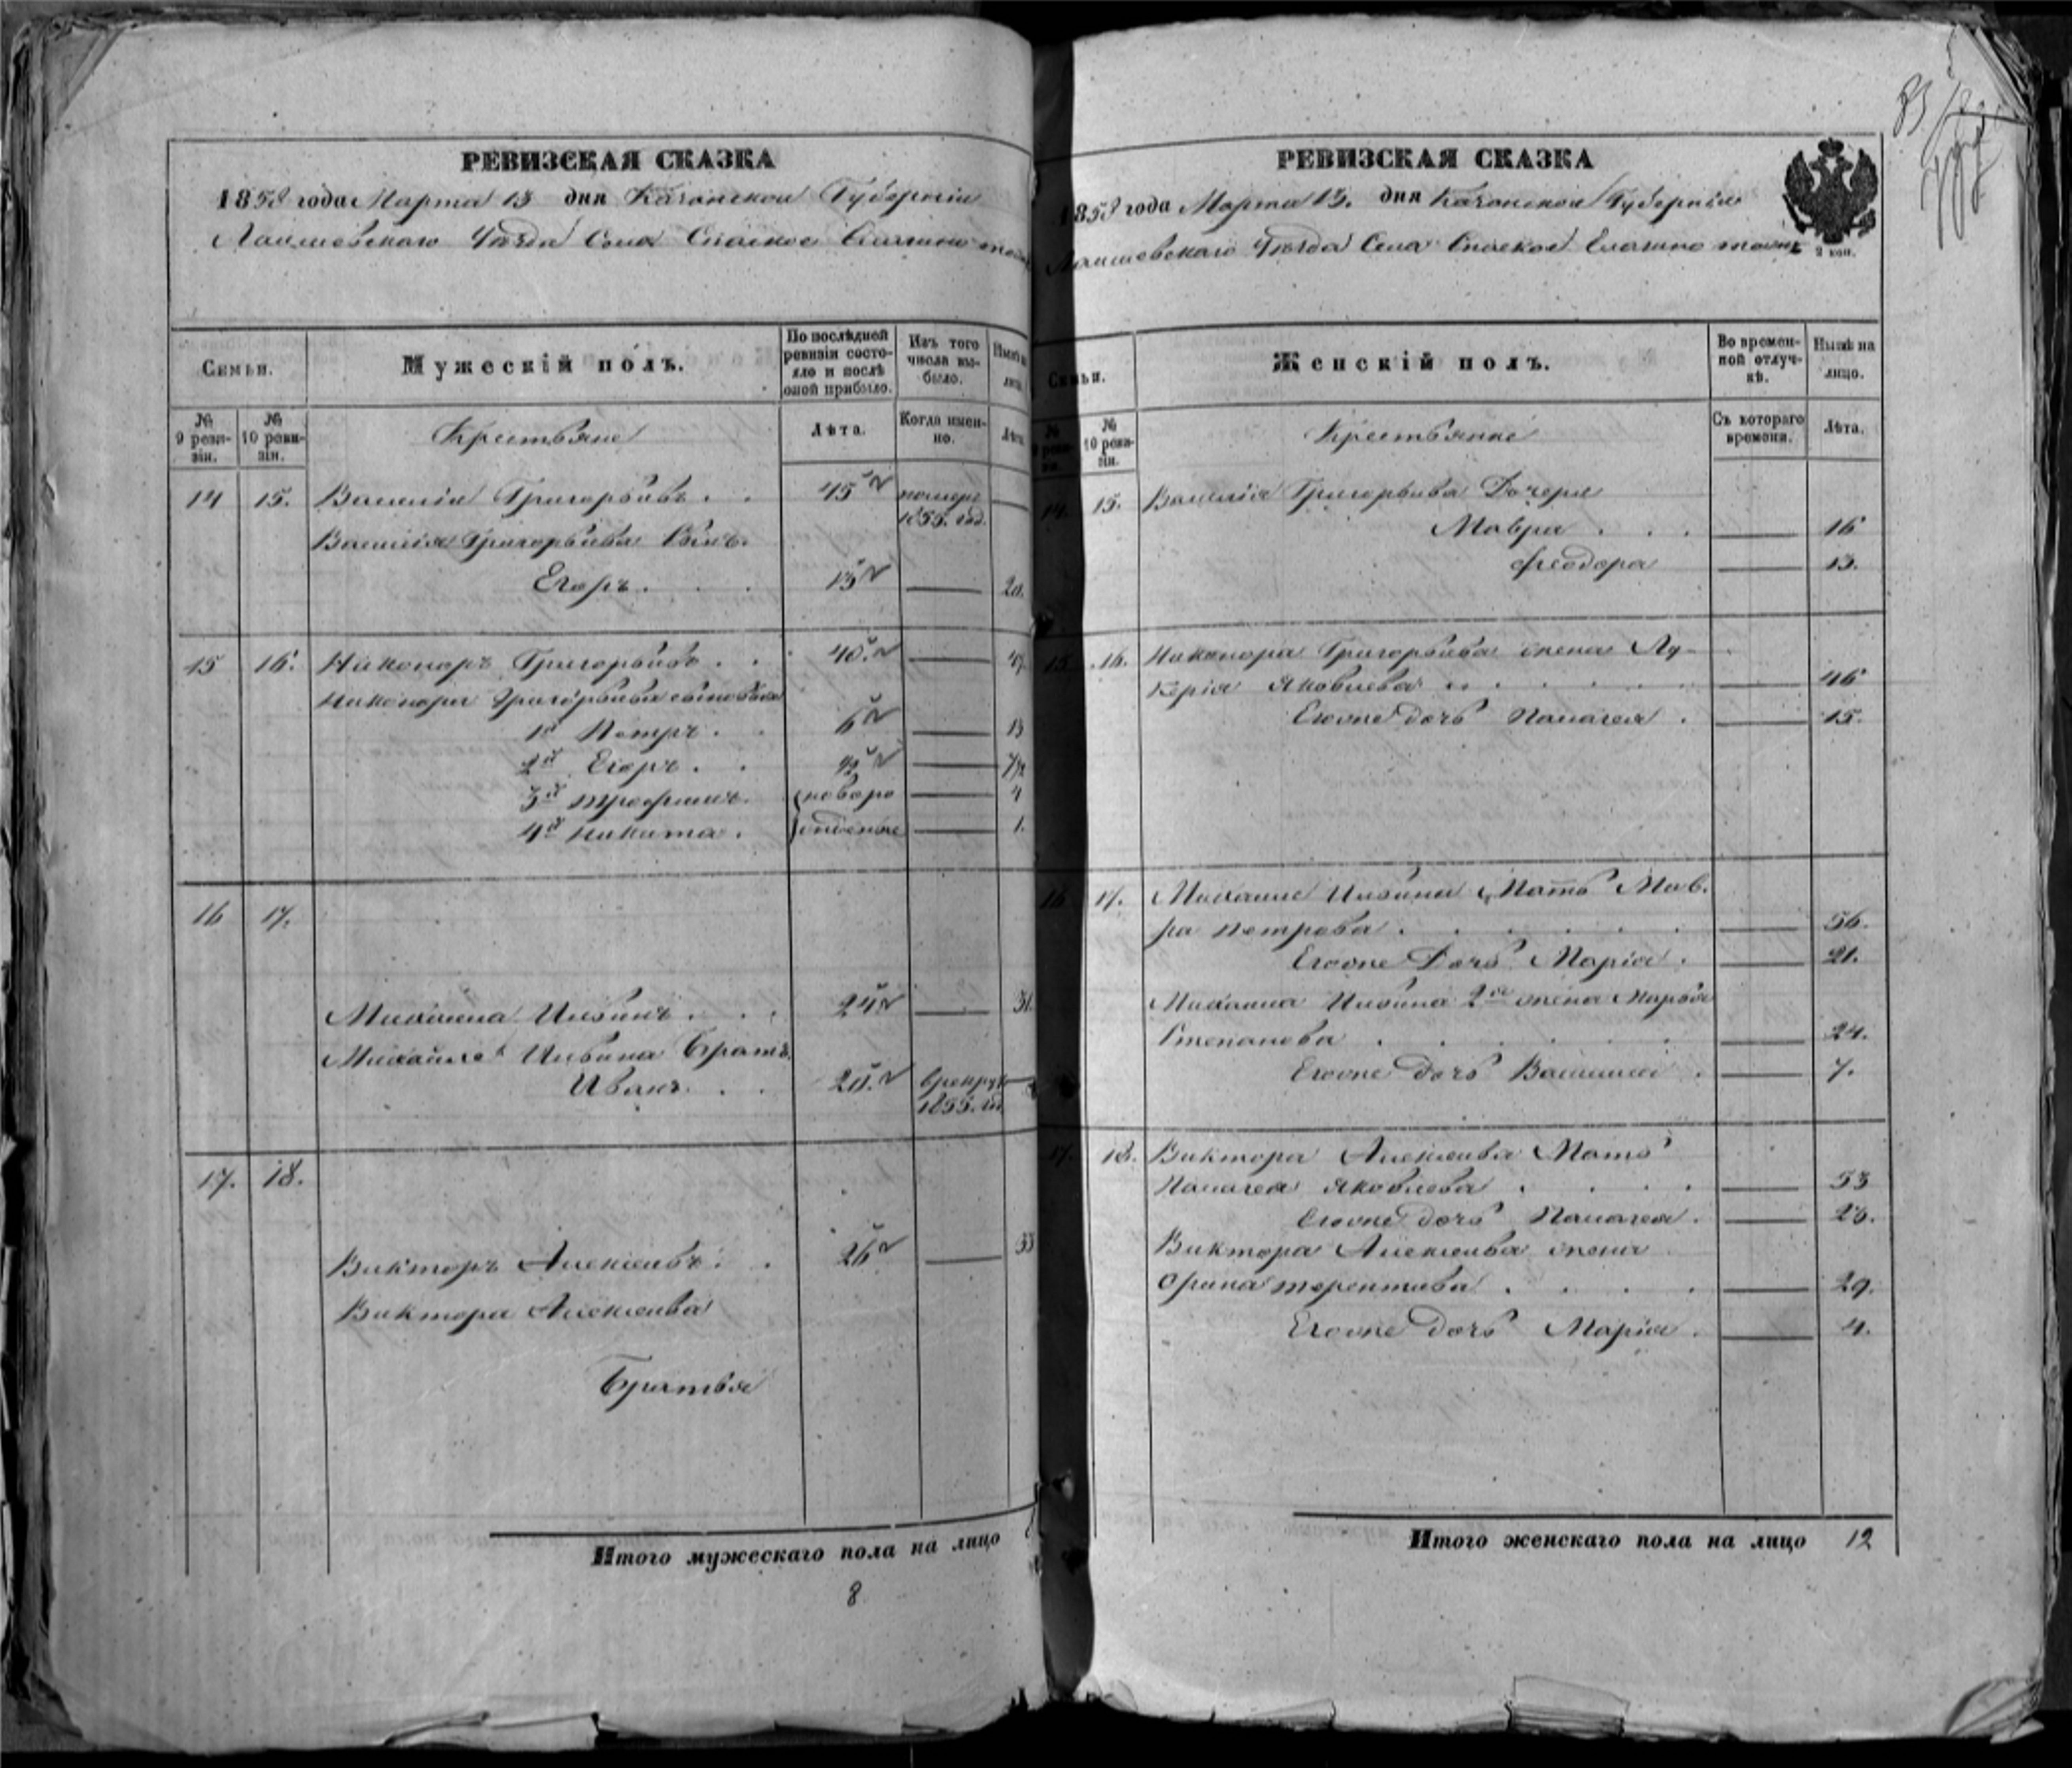 РЕВИЗСКАЯ СКАЗКА
1858 года Марта 13 дня Казанской Губерніи
Лаишевскаго Уѣзда Села Спаское Елагино тожъ
Семьи.
Мужескій полъ.
По послѣдней ревизіи состояло и послѣ оной прибыло.
Изъ того числа выбыло.
№ 9 ревизіи.
№ 10 ревизіи.
Крестьяне
Лѣта.
Когда именно.
Лѣта
14 15. Василій Григорьевъ . . 45 помер 1855. год.
Василія Григорьева Сынъ.
Егоръ . . . 13 20.
15 16. Никаноръ Григорьевъ . . 40.
Никанора Григорьева сыновья
1й Петръ . . 6 13
2й Егоръ . . ½ 7½
3й Трофимъ. новоро 4
4й Никита . жденные 1.
16 17.
Михаила Ильинъ . . . 24
Михайлы Ильина Братъ
Иванъ . . . 20. в рекрут 1855. год
17. 18.
Викторъ Алексеевъ . . 26 33
Виктора Алексеева
Братья
Итого мужескаго пола на лицо
8
РЕВИЗСКАЯ СКАЗКА
1858 года Марта 13. дня Казанской Губерніи
Лаишевскаго Уѣзда Села Спаское Елагино тожъ
2 коп.
Семьи.
Женскій полъ.
Во временной отлучкѣ.
Нынѣ на лицо.
№ 10 ревизіи.
Крестьянке
Съ котораго времени.
Лѣта.
14 15. Василія Григорьева Дочери
Мавра . . . 16
Феодора 13.
15 16. Никанора Григорьева жена Лу-
керія Яковлева . . . . . 46
Еговже дочь Палагея . 15.
16 17. Михаилы Ильина Мать Мав.
ра Петрова . . . . . . 56.
Еговже Дочь Марія . 21.
Михаила Ильина 2я жена Марья
Степанова . . . . . 24.
Еговже дочь Василиса . 7.
17. 18. Виктора Алексеева Мать
Палагея Яковлева . . . . 53
Еговже дочь Палагея . 23.
Виктора Алексеева жена
Орина Терентьева . . . . 29.
Еговже дочь Марія . 4.
Итого женскаго пола на лицо 12